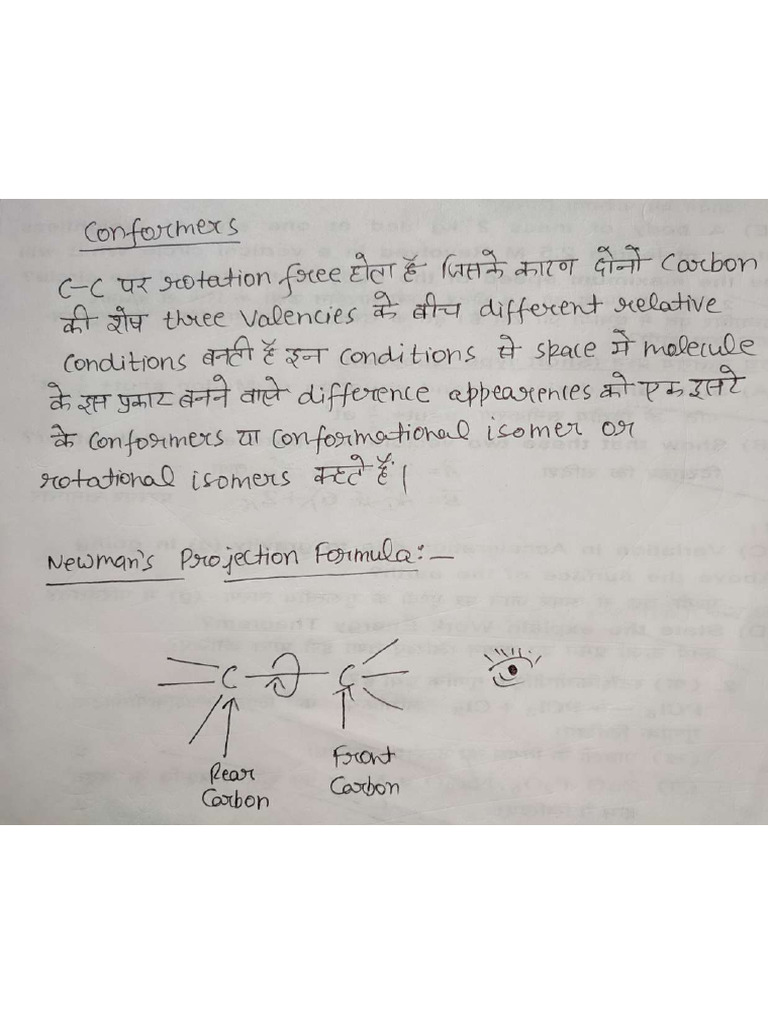 Conformers
C-C पर rotation free होता है जिसके कारण दोनों Carbon
की शेष three valencies के बीच different relative
conditions बनती हैं इन conditions से space में molecule
के इस प्रकार बनने वाले difference appearences को एक दूसरे
के conformers या conformational isomer or
rotational isomers कहते हैं।
Newman's Projection Formula:-
C C
Rear Front
Carbon Carbon